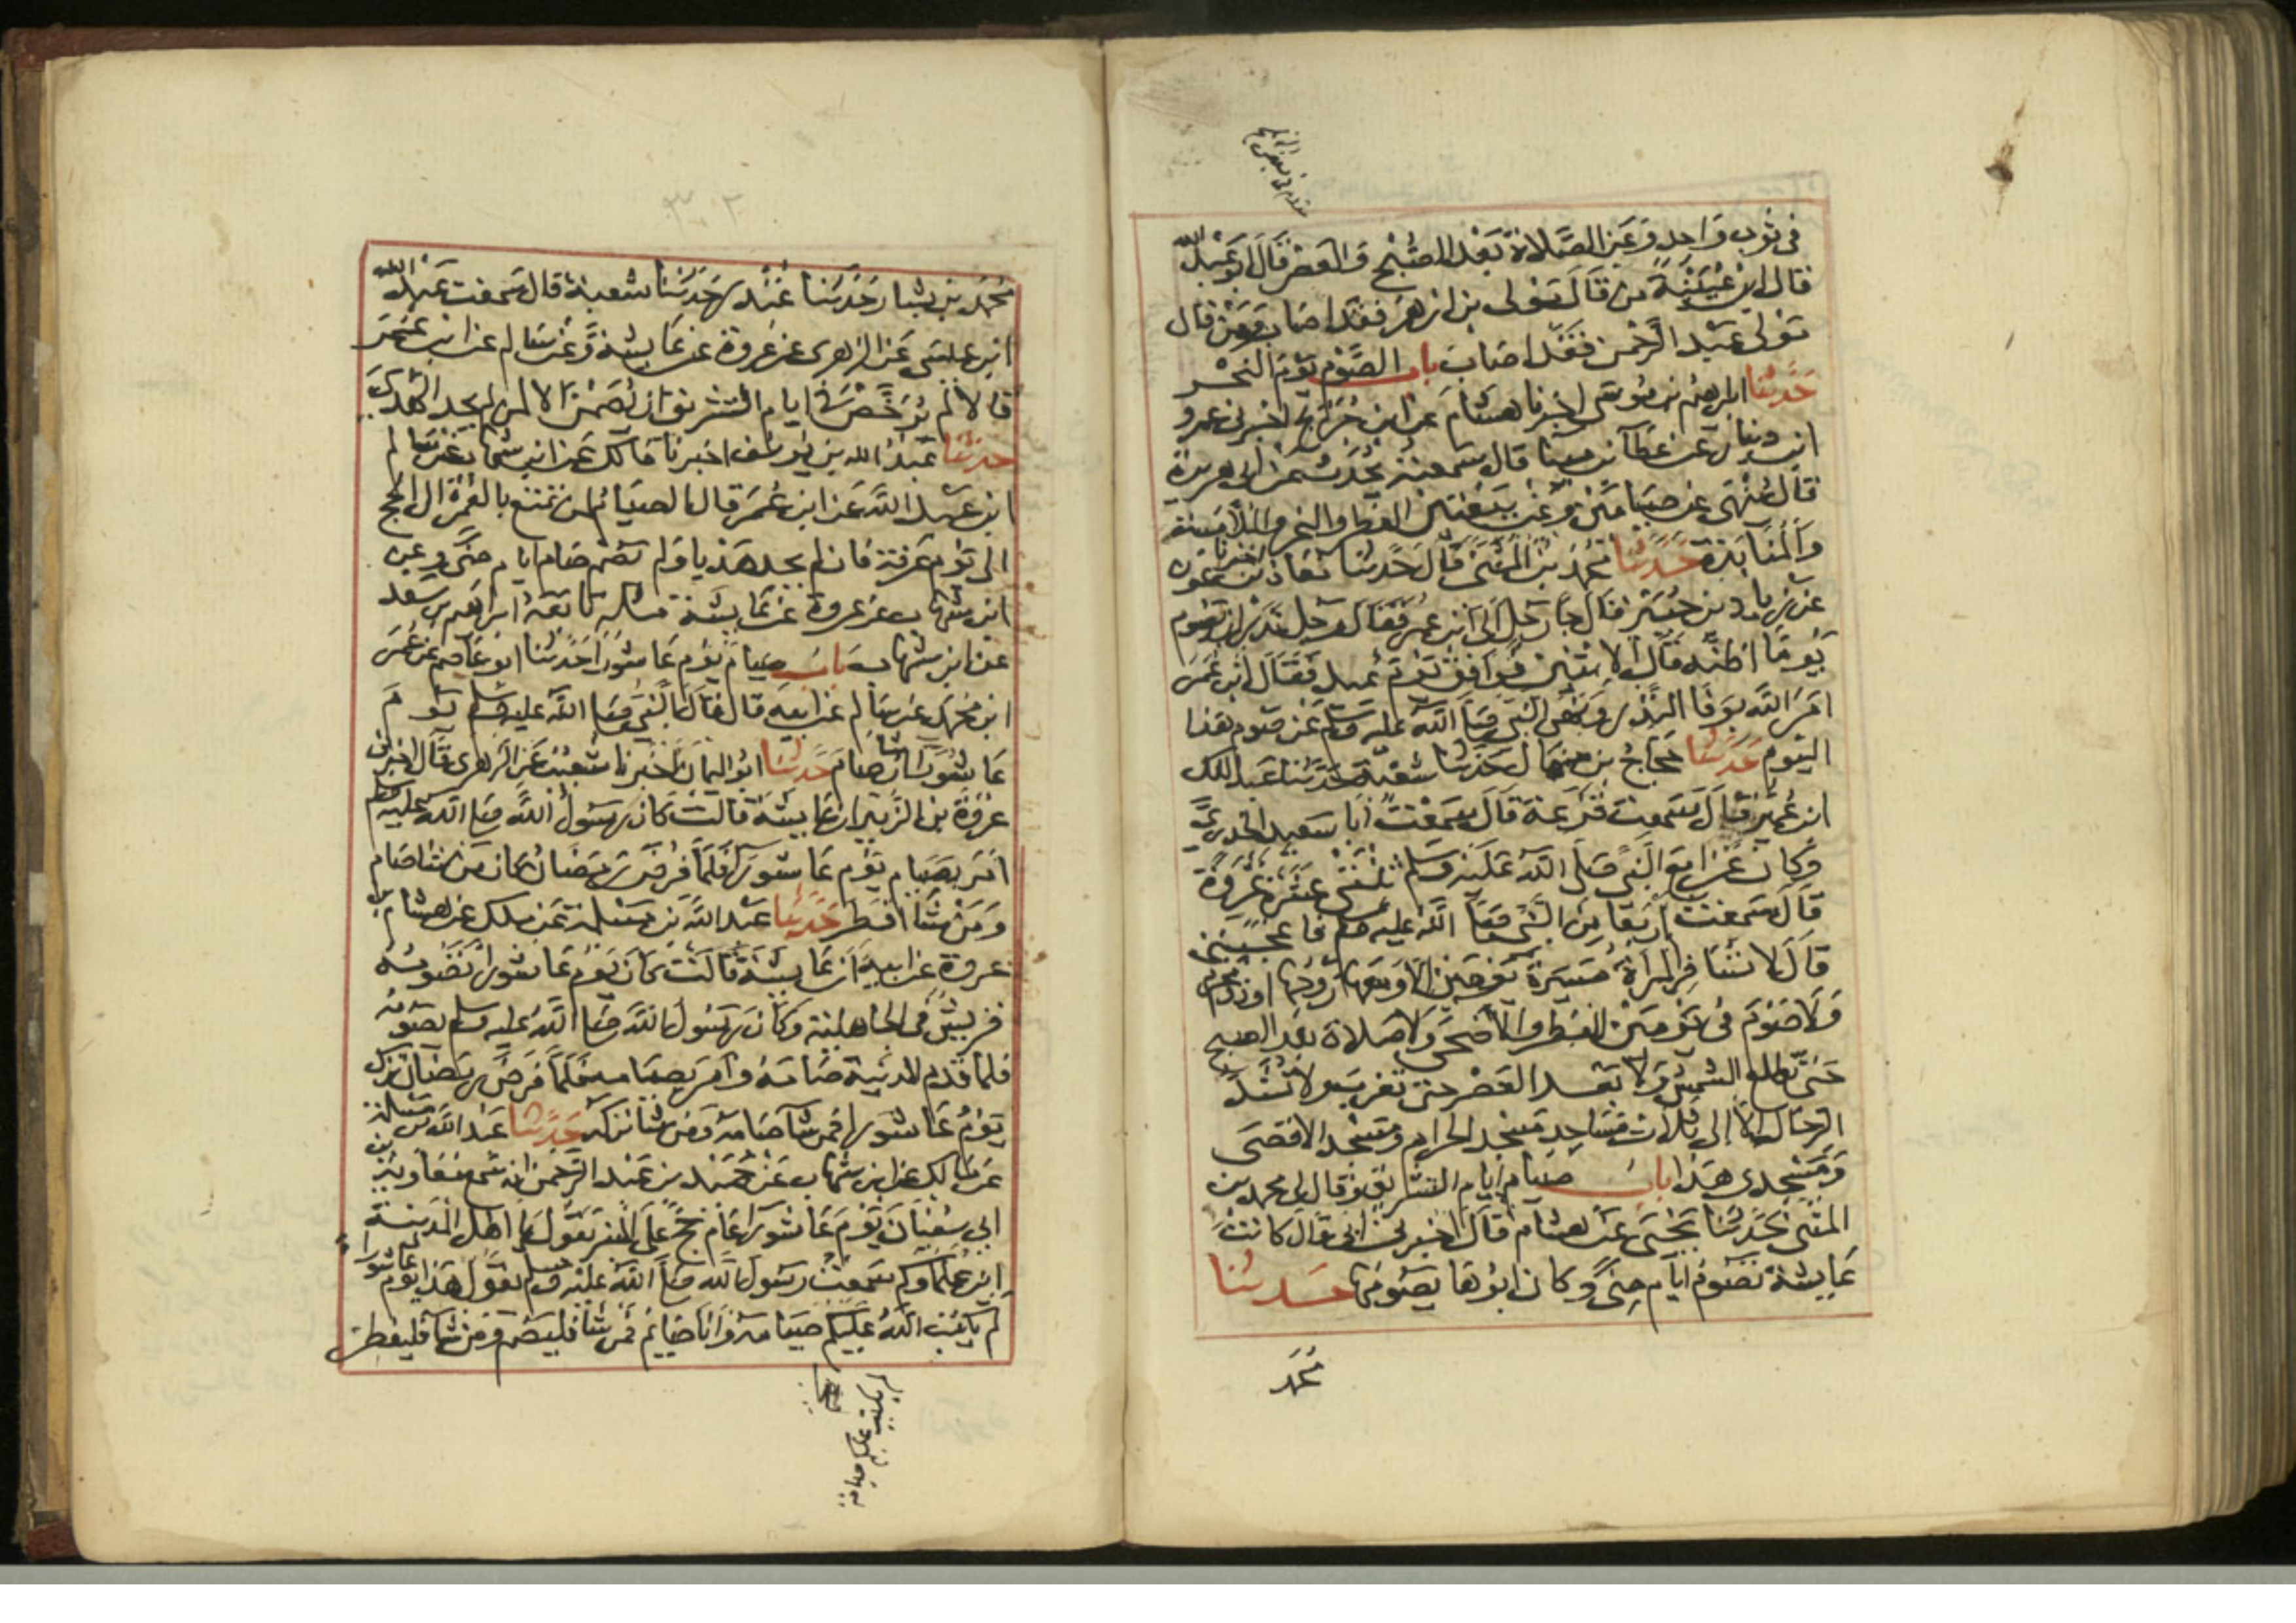 في ثوب واحد وعن الصلاة بعد الصبح والعصر قال ابو عبد الله
قال ابن عيينة من قال مولى بن ازهر فقد اصاب ومن قال
مولى عبد الرحمن فقد اصاب باب الصوم يوم النحر
حدثنا ابرهيم بن موسى اخبرنا هشام عن ابن جريج اخبرني عمرو
ابن دينار عن عطآ بن مينا قال سمعته يحدث عن ابي هريرة
قال ينهى عن صيامين وعن بيعتين الفطر والنحر والملامسة
والمنابذة حدثنا محمد بن المثنى قال حدثنا معاذ اخبرنا بن عون
عن زياد بن جبير قال جا رجل الى ابن عمر فقال رجل نذر ان يصوم
يوما اظنه قال الاثنين فوافق يوم عيد فقال ابن عمر
امر الله بوفا النذر ونهى النبي صلى الله عليه وسلم عن صوم هذا
اليوم حدثنا حجاج بن منهال حدثنا شعبة حدثنا عبد الملك
ابن عمير قال سمعت قزعة قال سمعت ابا سعيد الخدري
وكان غزا مع النبي صلى الله عليه وسلم ثنتي عشرة غزوة
قال سمعت اربعا من النبي صلى الله عليه وسلم فاعجبنني
قال لا تسافر المراة مسيرة يومين الا ومعها زوجها او ذو محرم
ولا صوم في يومين الفطر والاضحى ولا صلاة بعد الصبح
حتى تطلع الشمس ولا بعد العصر حتى تغرب ولا تشد
الرحال الا الى ثلاث مساجد مسجد الحرام ومسجد الاقصى
ومسجدي هذا باب صيام ايام التشريق وقال لي محمد بن
المثنى حدثنا يحيى عن هشام قال اخبرني ابي قال كانت
عايشة تصوم ايام منى وكان ابوها يصومها حدثنا
محمد
محمد بن بشار حدثنا غندر حدثنا شعبة قال سمعت عبد الله
ابن عيسى عن الزهرى عن عروة عن عايشة وعن سالم عن ابن عمر
قالا لم يرخص في ايام التشريق ان يصمن الا لمن لم يجد الهدى
حدثنا عبد الله بن يوسف اخبرنا مالك عن ابن شهاب عن سالم
ابن عبد الله عن ابن عمر قال الصيام لمن تمتع بالعمرة الى الحج
الى يوم عرفة فان لم يجد هديا ولم يصم صام ايام منى وعن
ابن شهاب عن عروة عن عايشة مثله تابعه ابراهيم بن سعد
عن ابن شهاب باب صيام يوم عاشورا حدثنا ابو عاصم عن عمر
ابن محمد عن سالم عن ابيه قال قال النبي صلى الله عليه وسلم يوم
عاشورا ان شا صام حدثنا ابو اليمان اخبرنا شعيب عن الزهرى قال اخبرني
عروة بن الزبير ان عايشة قالت كان رسول الله صلى الله عليه وسلم
امر بصيام يوم عاشورا فلما فرض رمضان كان من شا صام
ومن شا افطر حدثنا عبد الله بن مسلمة عن ملك عن هشام بن
عروة عن ابيه ان عايشة قالت كان يوم عاشورا تصومه
قريش في الجاهلية وكان رسول الله صلى الله عليه وسلم يصومه
فلما قدم المدينة صامه وامر بصيامه فلما فرض رمضان ترك
يوم عاشورا فمن شا صامه ومن شا تركه حدثنا عبد الله بن مسلمة
عن مالك عن ابن شهاب عن حميد بن عبد الرحمن انه سمع معاوية بن
ابي سفيان يوم عاشورا عام حج على المنبر يقول يا اهل المدينة
اين علماوكم سمعت رسول الله صلى الله عليه وسلم يقول هذا يوم عاشورا
لم يكتب الله عليكم صيامه وانا صايم فمن شا فليصم ومن شا فليفطر